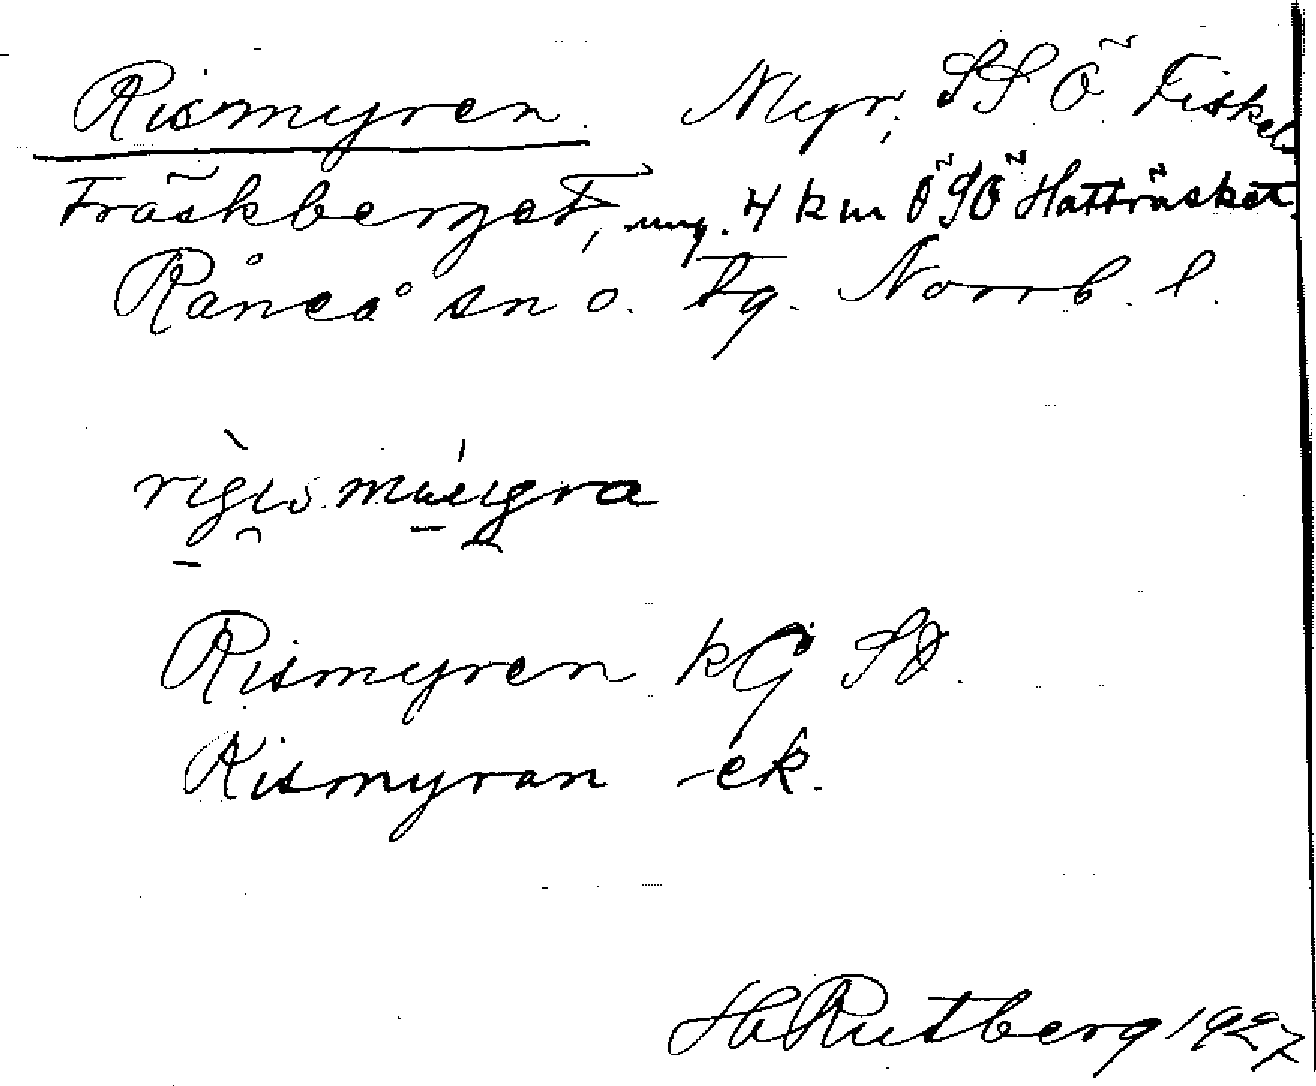 Rismyren. Myr, SSÖ Fiskel
Träskberget, ung. 4 km ÖSÖ Hatträsket.
Råneå sn o. tg. Norrb. l.
Rismyren kG Sd.
Rismyran ek.
H Rutberg 1927